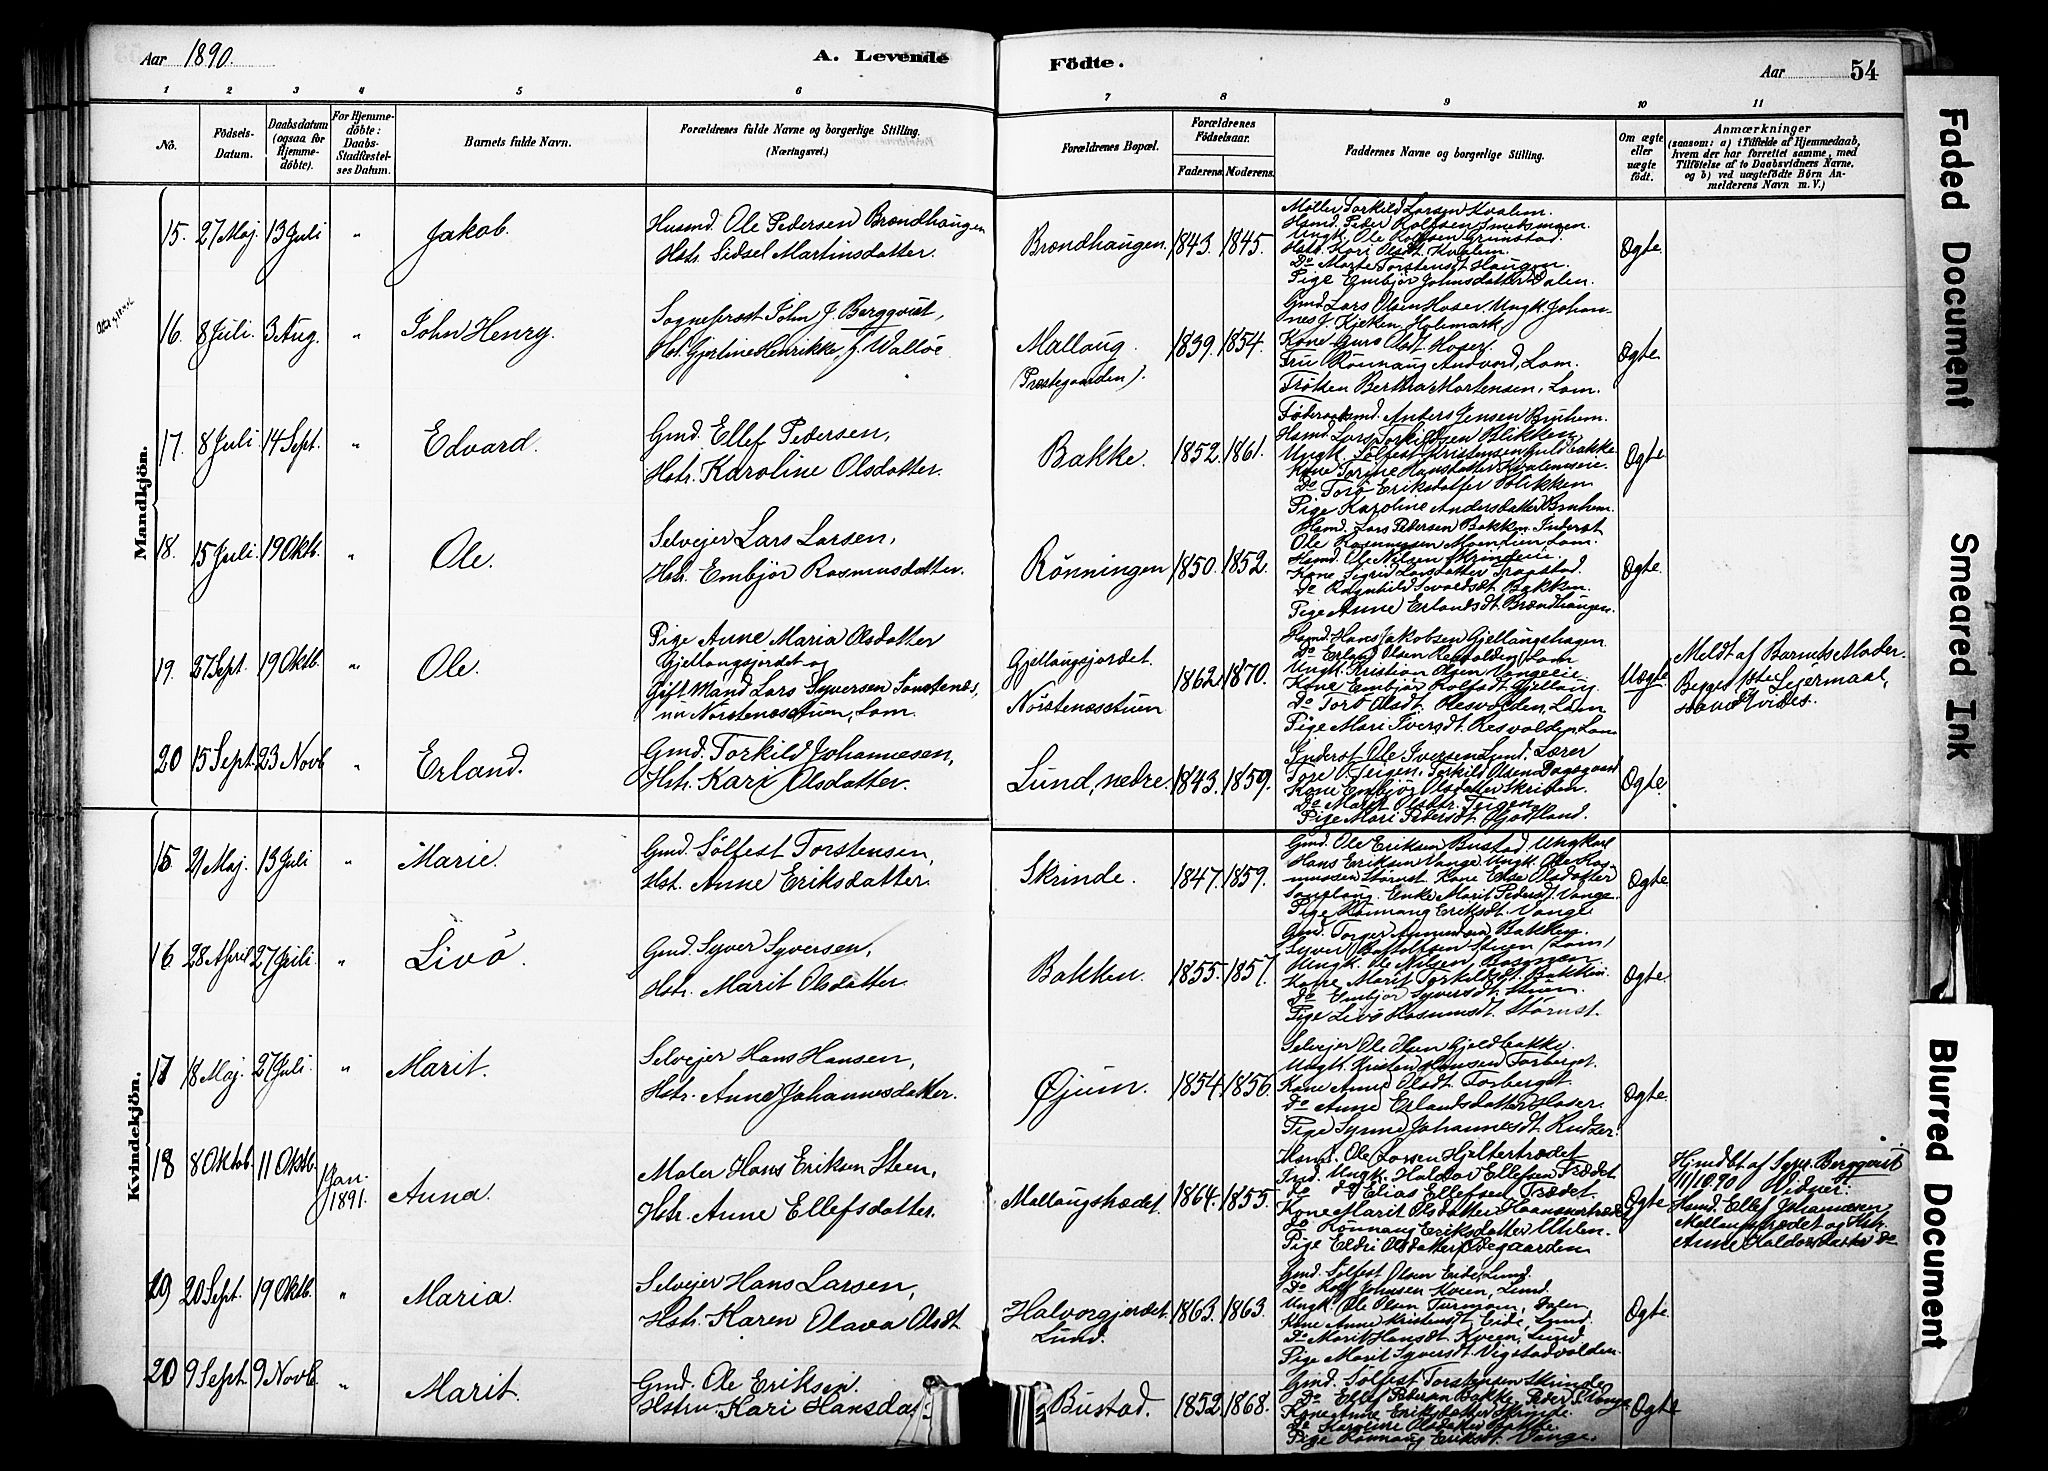 Aar 1890.
A. Levende
Födte.
Aar 54
1 2 3 4 5 6 7 8 9 10 11
No.
Födsels-Datum.
Daabsdatum (ogsaa for Hjemme-döbte).
For Hjemme-döbte: Daabs-Stadfæstel-ses Datum.
Barnets fulde Navn.
Forældrenes fulde Navne og borgerlige Stilling.
(Næringsvei.)
Forældrenes Bopæl.
Forældrenes Födselsaar.
Faderens Moderens
Faddernes Navne og borgerlige Stilling.
Om ægte eller uægte födt.
Anmærkninger
(saasom: a) i Tilfælde af Hjemmedaab, hvem der har forrettet samme, med Tilföielse af to Daabsvidners Navne, og b) ved uægtefödte Börn An-melderens Navn m. V.)
Mandkjön.
15. 27 Maj 13 Juli " Jakob.
Husmd. Ole Pedersen Brændhaugen
Hstr. Sidsel Martinsdatter.
Brændhaugen. 1843. 1845.
Möller Torkild Larsen Kvalem.
Ungk. Ole Rolfsen Grunstad.
Hstr. Kari Olsdt. Kvalem.
Do Marte Torstensdt Haugen.
Pige Embjör Johnsdatter Dalen.
Ægte.
16. 8 Juli. 3 Aug. " John Henry.
Sogneprest John J. Bergqvist,
Hst. Gjertine Henrikke, f. Walløe
Mallaug (Præstegaarden). 1839. 1854.
Gmd. Lars Olsen Hoser. Ungk. Johan-
nes J. Kjæken Holemark
Kone Guro Olsdt Hoser.
Fru Rönnaug Andvord, Lom.
Fröken Bertha Mortensen, Lom.
Ægte.
17. 8 Juli 14 Sept. " Edvard.
Gmd. Ellef Pedersen,
Hstr. Karoline Olsdatter.
Bakke. 1852. 1861.
Föderaadsmd. Anders Jensen Bruhem.
Hsmd. Lars Torkildsen Blikken
Do Torö Eriksdatter Blikken
Pige Karoline Andersdatter Bruhem.
Ægte
18. 15 Juli. 19 Oktb. " Ole.
Selvejer Lars Larsen,
Hstr. Embjör Rasmusdatter.
Rönningen 1850. 1852.
Hsmd. Lars Pedersen Bakken. Inderst
Hsmd. Ole Nilsen Skrindeie.
Kone Sigrid Larsdatter
Do Ragnhild Sivardsdt. Bakken.
Pige Anne Erlandsdt. Brændhaugen.
Ægte.
19. 27 Sept. 19 Oktb. " Ole.
Pige Anne Maria Olsdatter
Gjellaugsjordet og
Gift Mand Lars Syversen Sönstenæs,
nu Nörstenæsstuen, Lom.
Gjellaugsjordet.
Nörstenæsstuen 1862 1870.
Hsmd. Hans Jakobsen Gjellaugshagen
Do Erland Olsen Resvolden, Lom
Ungk. Kristian Olsen Vangeeie
Kone Embjör Rolfsdt Gjellaug.
Do Torö Olsdt. Resvolden, Lom
Pige Mari Iversdt. Resvolden, Lom
Uægte
Meldt af Barnets Moder.
Begges 1ste Lejermaal,
20 15 Sept. 23 Novb. " Erland.
Gmd. Torkild Johannesen,
Hstr. Kari Olsdatter.
Lund, nedre. 1843. 1859.
Inderst Ole Iversen Lund. Lærer
Tore O. Teigen, Torkild Olsen
Kone Embjör Olsdatter Skriden.
Do Marit Olsdtr. Teigen
Pige Mari Pedersdt.
Ægte.
Kvindekjön.
15 21 Maj. 13 Juli " Marie.
Gmd. Sölfest Torstensen,
Hst. Anne Eriksdatter.
Skrinde. 1847. 1859.
Gmd. Ole Eriksen Bustad Ungkarl
Hans Eriksen Vange. Ungk. Ole Ras-
mussen Störust. Kone Else Olsdatter
Enke Marit Pedersdt. Vange.
Pige Rönnaug Eriksdt. Vange
Ægte
16 28 April 27 Juli. " Livö.
Gmd. Syver Syversen,
Hstr. Marit Olsdatter.
Bakken. 1855. 1857.
Gmd. Torger Amundsen Bakken.
Ungk. Ole Nilsen
Kone Marit Torkildsdt. Bakken.
Do Embjör Syversdt. Stuen.
Pige Livö Rasmusdt. Störust.
Ægte.
17 18 Maj. 27 Juli. " Marit.
Selvejer Hans Hansen,
Hstr. Anne Johannesdatter.
Øjum. 1854 1856.
Selvejer Ole Olsen Gjeldbakke.
Ungk. Kristen Hansen Forberget.
Kone Anne Olsdt Forberget
Do Anne Erlandsdatter Hoser.
Pige Synne Johannesdt. Rudser.
Ægte.
18 8 Oktob. 11 Oktb. Jan. 1891. Anna.
Maler Hans Eriksen Steen,
Hstr. Anne Ellefsdatter.
Mallaugstrædet. 1864. 1855.
Hsmd. Ole Larsen Hjeltertrædet
Ind. Ungk. Haldor Ellefsen Trædet
Do do Elias Ellefsen Trædet.
Kone Marit Olsdatter
Do Rönnaug Eriksdatter Uhlen.
Pige Eldri Olsdatter Ødegaarden
Ægte
Hjmdbt af Sgpr. Bergqvist
Vidner:
Hsmd. Ellef Johannesen,
Mallaugstrædet og Hstr.
Anne Haldorsdatter Do
19 20 Sept. 19 Oktb. " Maria.
Selvejer Hans Larsen,
Hstr. Karen Olava Olsdt.
Halvorgjerdet.
Lund. 1863. 1863.
Gmd. Sölfest Olsen Eide, Lund.
Do Rolf Johnsen Kveen, Lund.
Ungk. Ole Olsen Turmoen, Dalen
Kone Anne Kristensdt Eide, Lund.
Do Marit Hansdt. Kveen, Lund.
Pige Marit Syversdt. Vigstadvolden.
Ægte
20 9 Sept. 9 Novb. " Marit.
Gmd. Ole Eriksen.
Hstru. Kari Hansda
Bustad. 1852. 1868.
Gmd. Sölfest Torstensen Skrinde
Do Ellef Pedersen Bakke,
Kone Anne Eriksdatter Skrinde.
Do Karoline Olsdatter Bakke.
Pige Rönnaug Eriksdt. Vange.
Ægte
Faded Document
Smeared Ink
Blurred Document